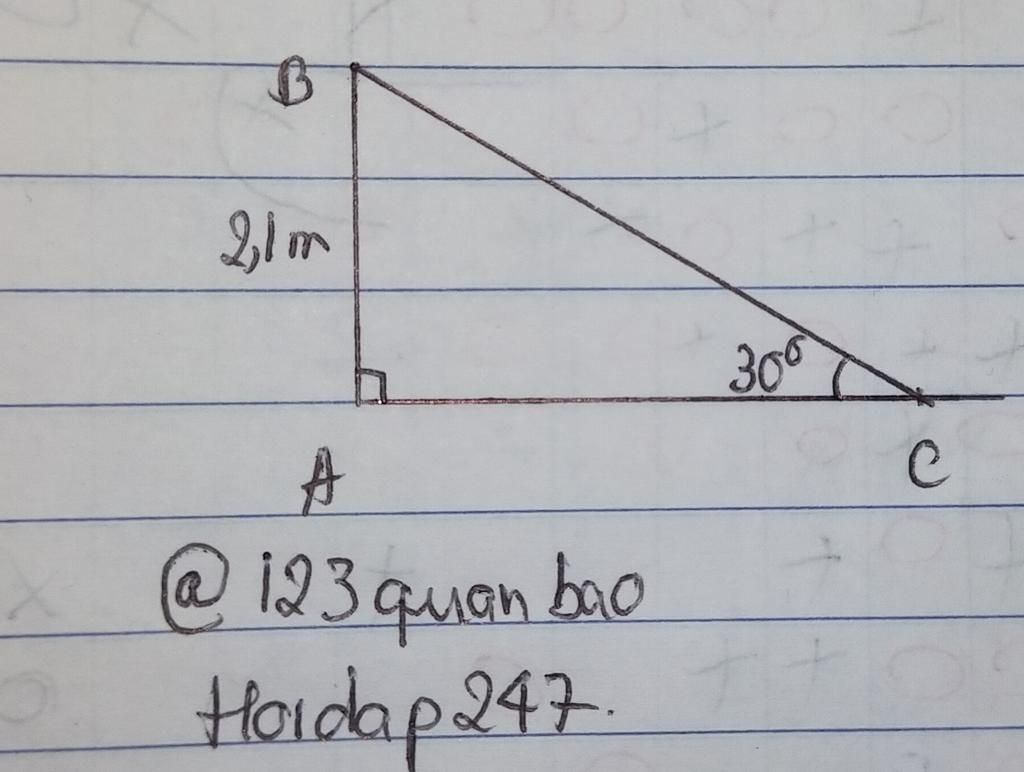 B
2,1m
30°
A
C
@ 123quan bao
Hoidap247.